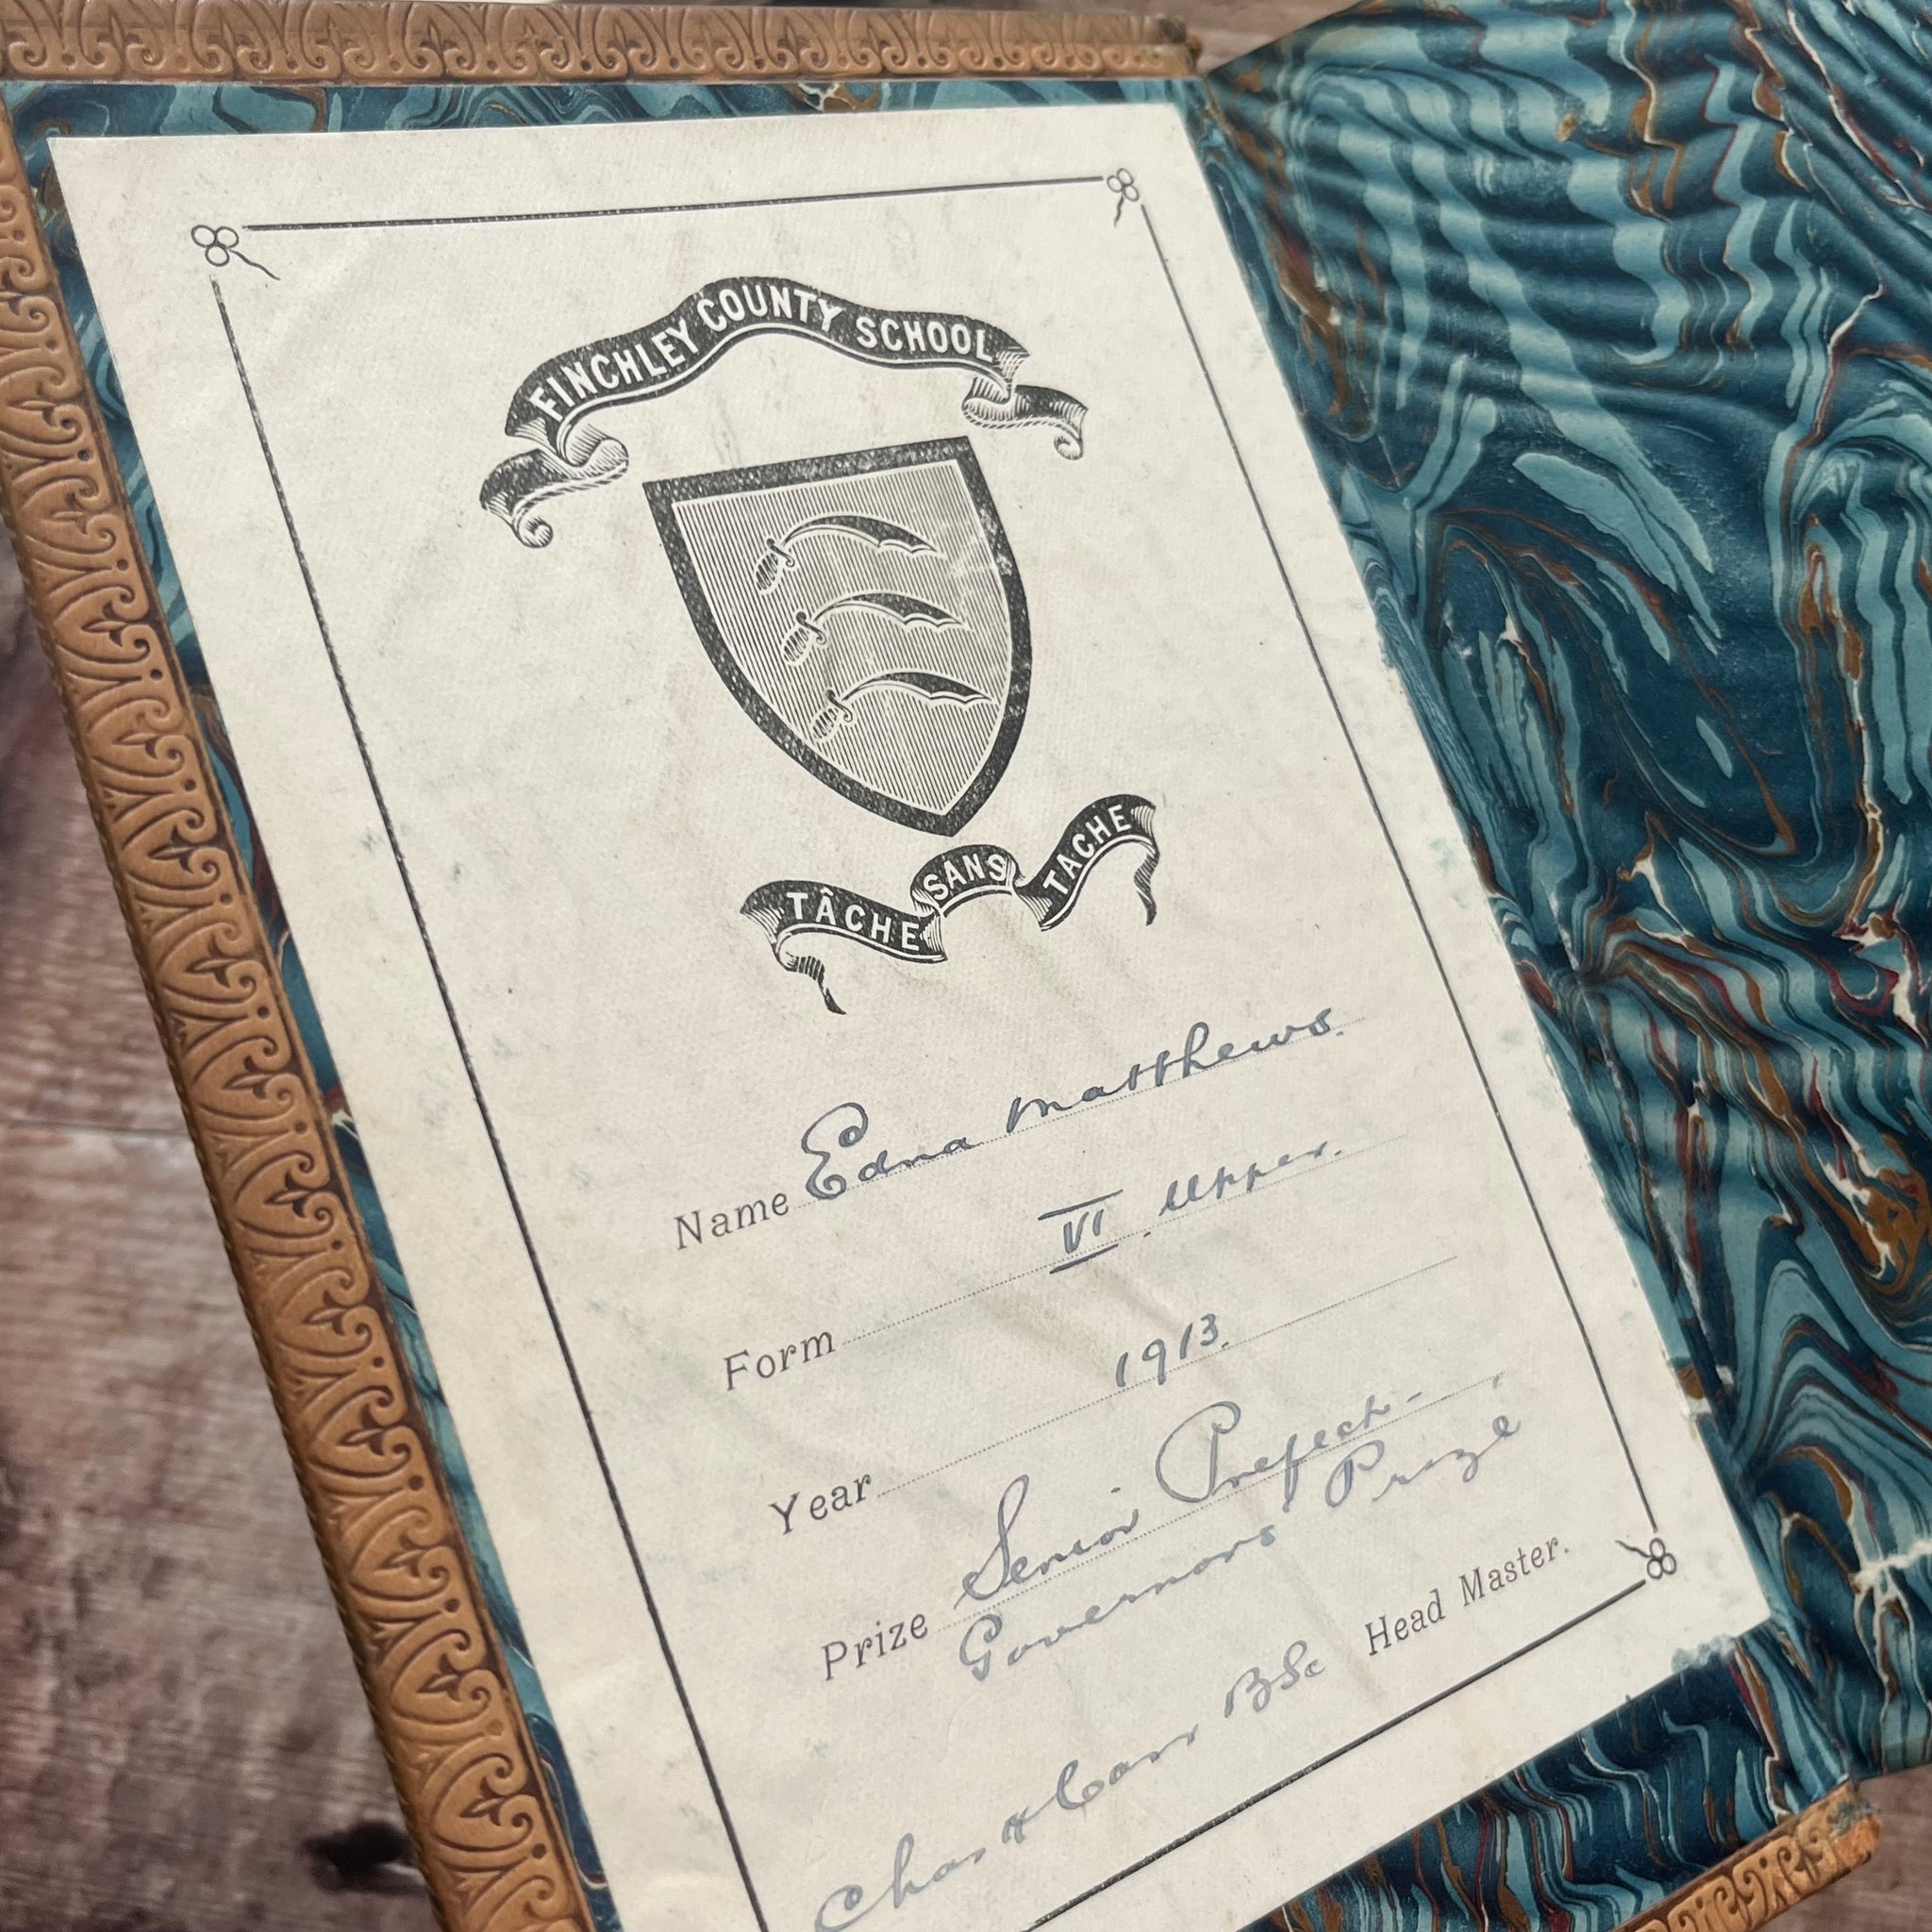 FINCHLEY COUNTY SCHOOL
TÂCHE SANS TACHE
Name Edna Matthews.
Form VI. Upper.
Year 1913.
Prize Senior Prefect -
Governors' Prize
Chas H Carr BSc Head Master.